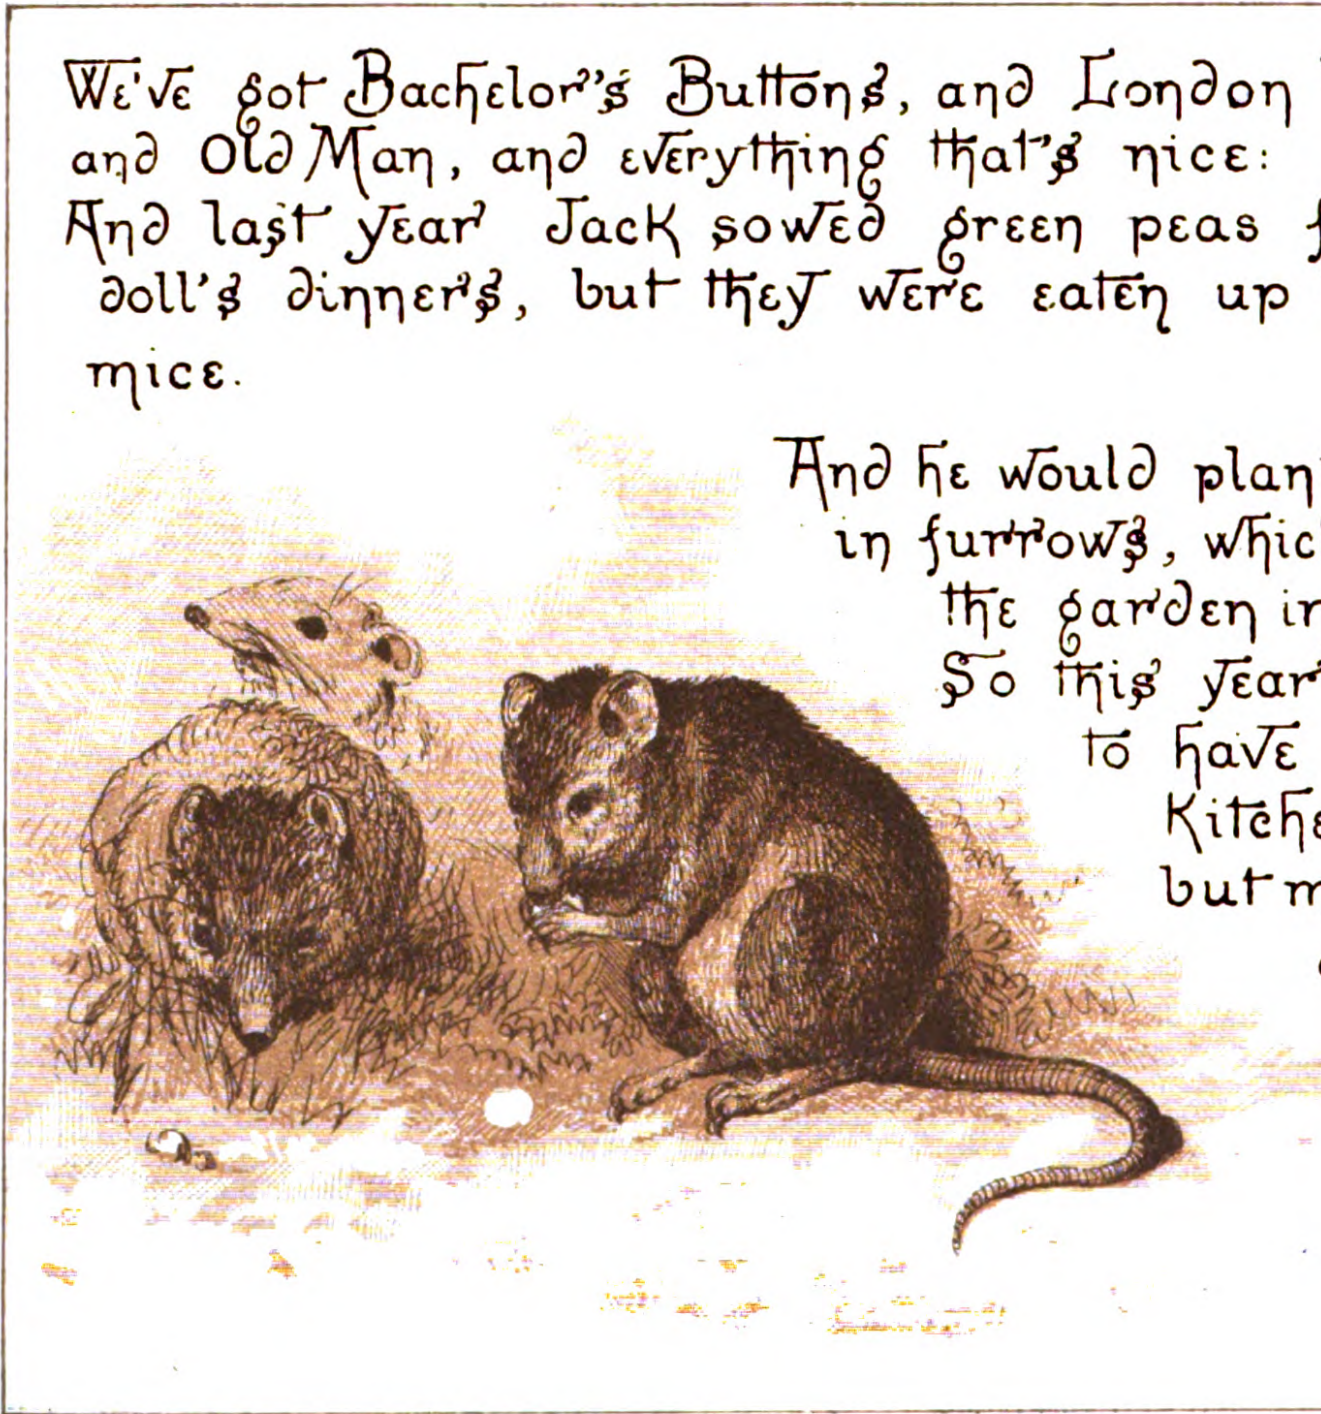 We've got Bachelor's Buttons, and London
and Old Man, and everything that's nice:
And last year Jack sowed green peas
doll's dinners, but they were eaten up
mice.
And he would plan
in furrows, whic
the garden in
So this year
to have
Kitche
but m